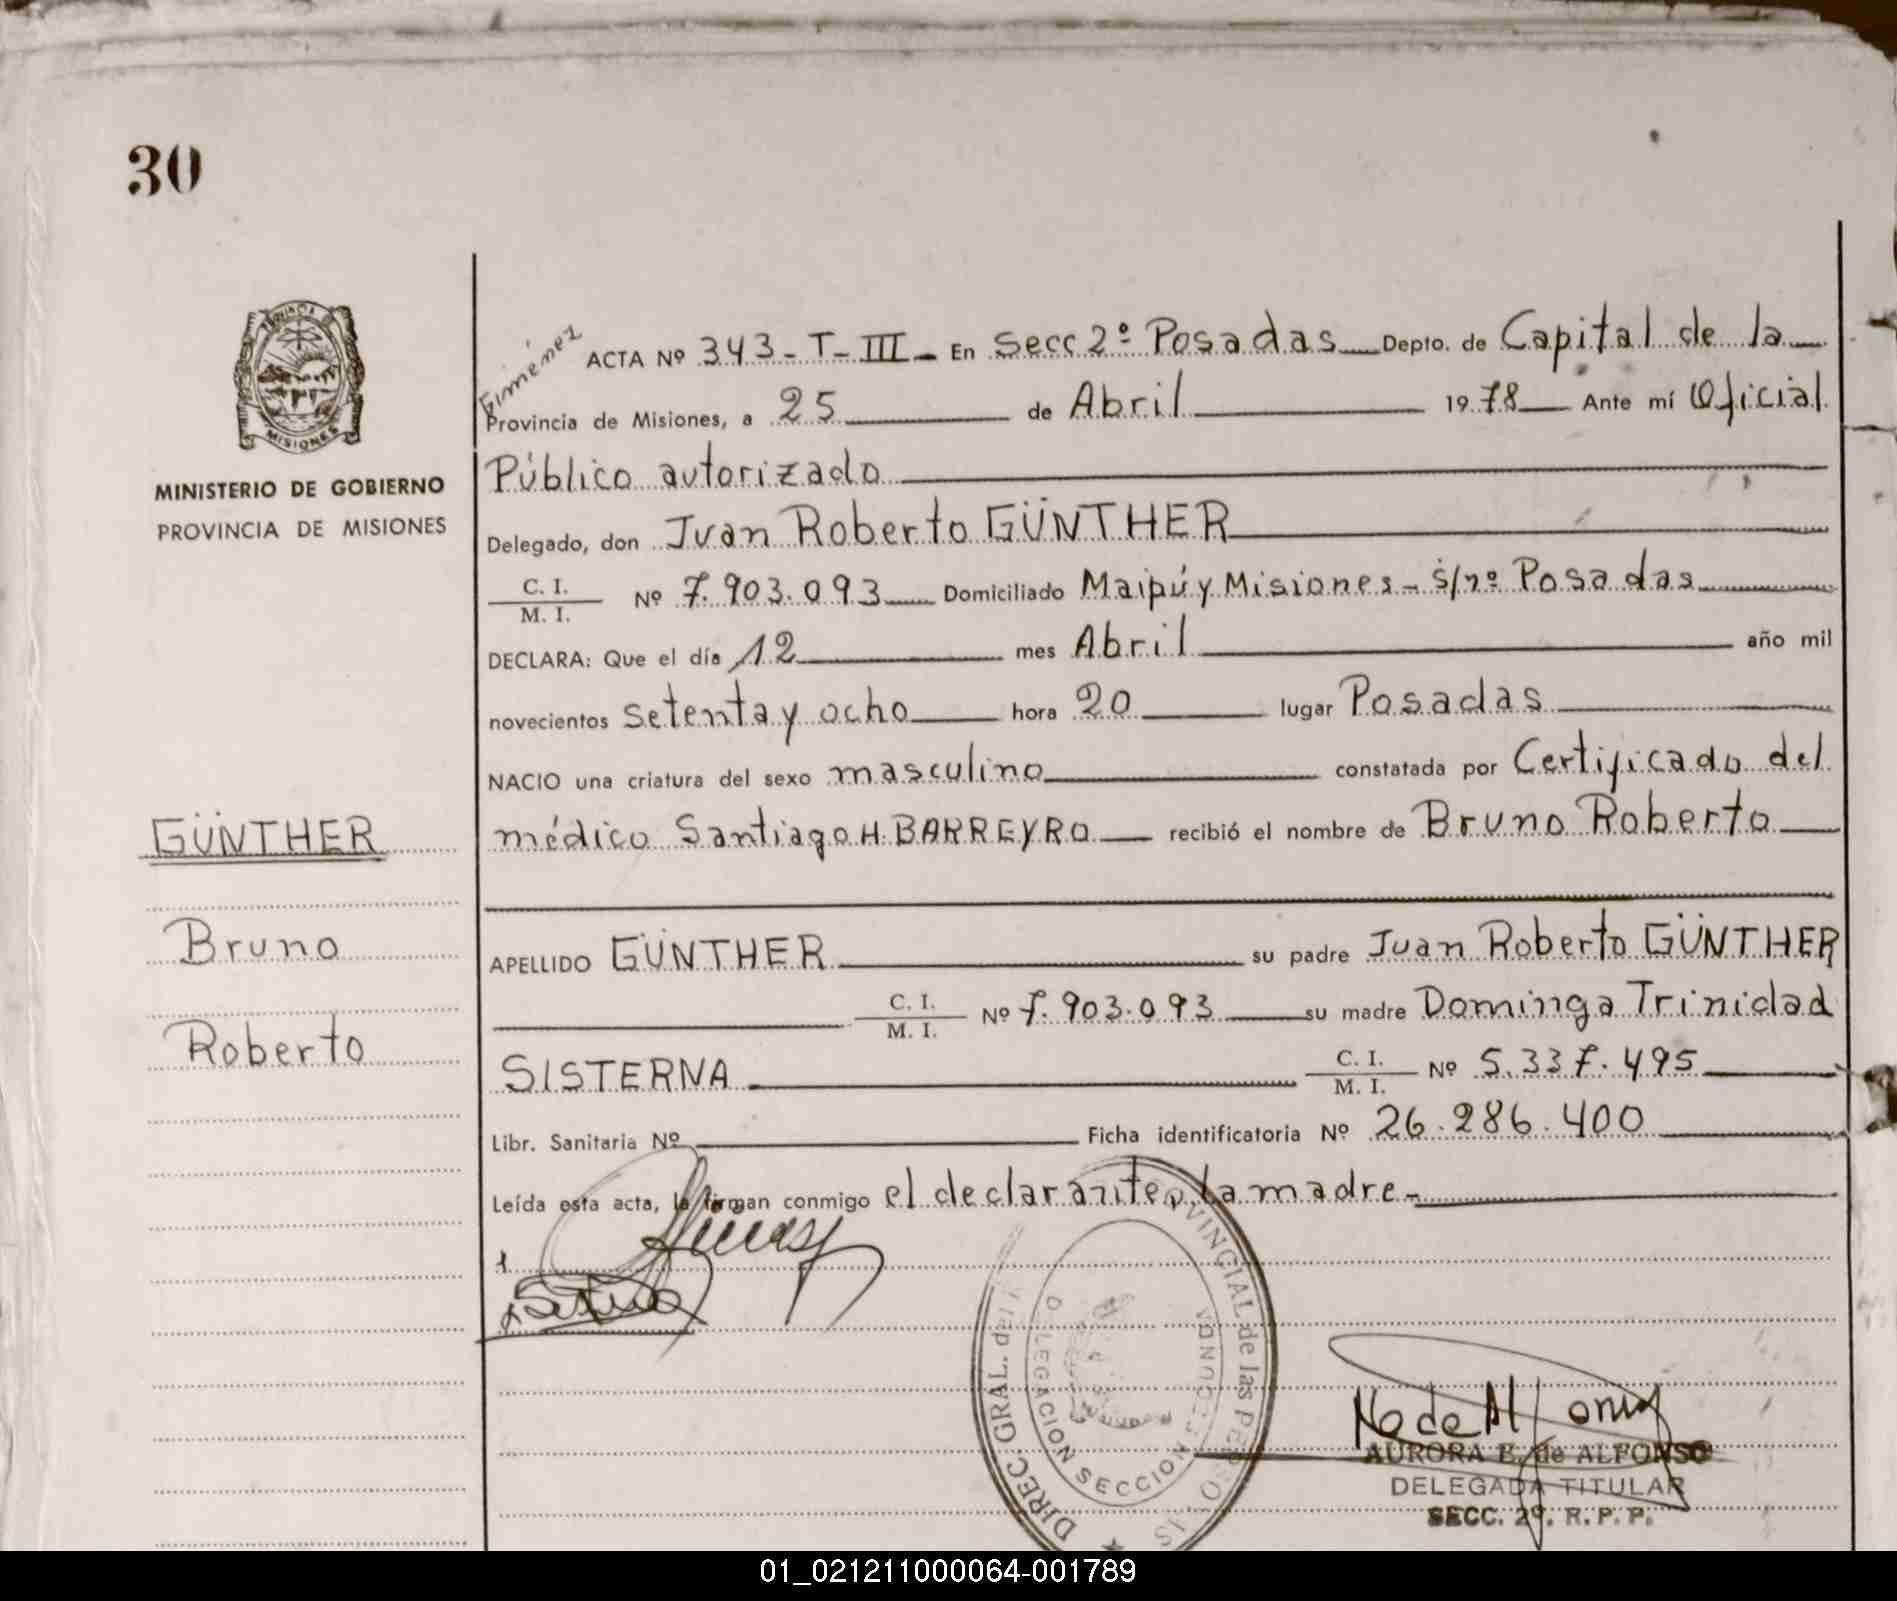 30
PROVINCIA DE
MISIONES
MINISTERIO DE GOBIERNO
PROVINCIA DE MISIONES
GÜNTHER
Bruno
Roberto
Giménez
ACTA Nº 343-T-III- En Secc 2º Posadas Depto. de Capital de la
Provincia de Misiones, a 25 de Abril 1978 Ante mí Oficial
Público autorizado
Delegado, don Juan Roberto GÜNTHER
C. I.
M. I. Nº 7.903.093 Domiciliado Maipú y Misiones - s/nº Posadas
DECLARA: Que el día 12 mes Abril año mil
novecientos setenta y ocho hora 20 lugar Posadas
NACIO una criatura del sexo masculino constatada por Certificado del
médico Santiago H. BARREYRO recibió el nombre de Bruno Roberto
APELLIDO GÜNTHER su padre Juan Roberto GÜNTHER
C. I.
M. I. Nº 7.903.093 su madre Dominga Trinidad
SISTERNA C. I.
M. I. Nº 5.337.495
Libr. Sanitaria Nº Ficha identificatoria Nº 26.286.400
Leída esta acta, la firman conmigo el declarante y la madre.-
DIREC. GRAL. del PROVINCIAL de las PERSONAS
DELEGACION SECCION SEGUNDA
AURORA E. de ALFONSO
DELEGADA TITULAR
SECC. 2º. R. P. P.
01_021211000064-001789